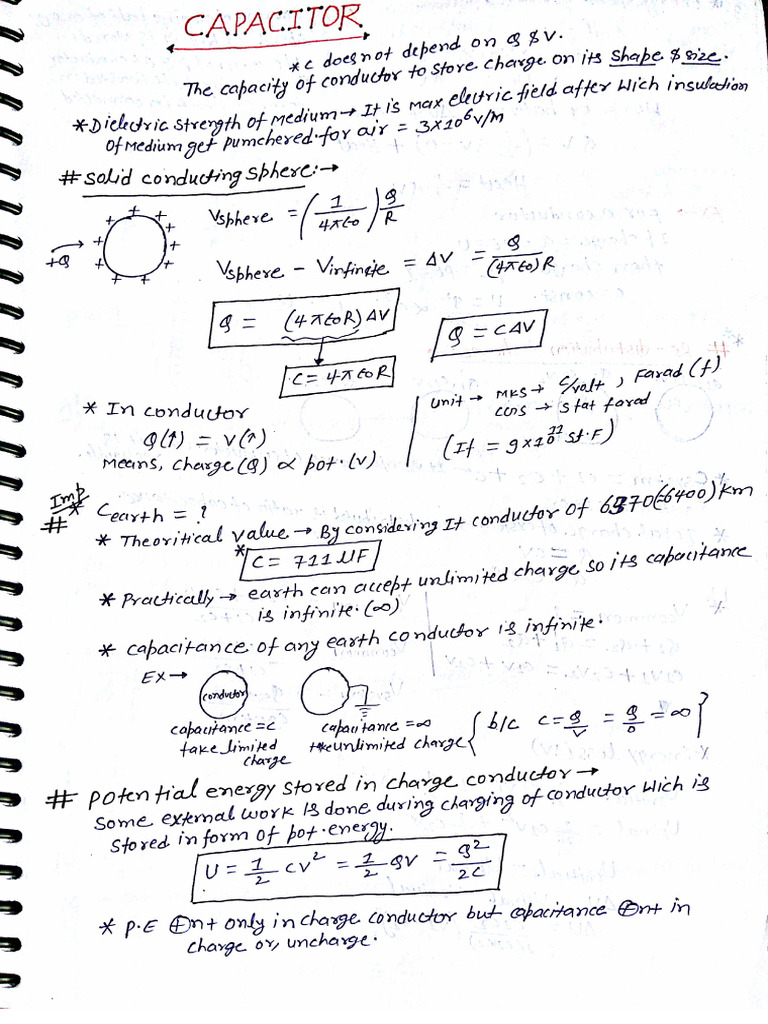 CAPACITOR
* C does not depend on Q & V.
The capacity of conductor to store charge on its shape & size.
* Dielectric strength of Medium → It is max electric field after wich insulation
of Medium get pumchered. for air = 3×10⁶ V/M
# Solid conducting sphere:→
+Q + + + + + + + + + +
Vsphere = (1/4πε0) Q/R
Vsphere - Vinfinite = ΔV = Q/(4πε0)R
Q = (4πε0R) ΔV
Q = CΔV
C = 4πε0R
* In conductor
Q(↑) = V(↑)
Means, charge (Q) ∝ pot. (V)
Unit → MKS → C/volt, Farad (f)
CGS → Stat farad
(1f = 9×10¹¹ st.F)
Imp
# * Cearth = ?
* Theoritical value → By considering It conductor of 6370(6400) km
* C = 711 μF
* Practically → earth can accept unlimited charge so its capacitance
is infinite. (∞)
* capacitance of any earth conductor is infinite.
EX →
conductor
capacitance = C
take limited
charge
capacitance = ∞
take unlimited charge
{ b/c C = Q/V = Q/0 = ∞ }
# Potential energy stored in charge conductor →
Some external work is done during charging of conductor wich is
stored in form of pot. energy.
U = 1/2 CV² = 1/2 QV = Q²/2C
* P.E ⊕nt only in charge conductor but capacitance ⊕nt in
charge or, uncharge.